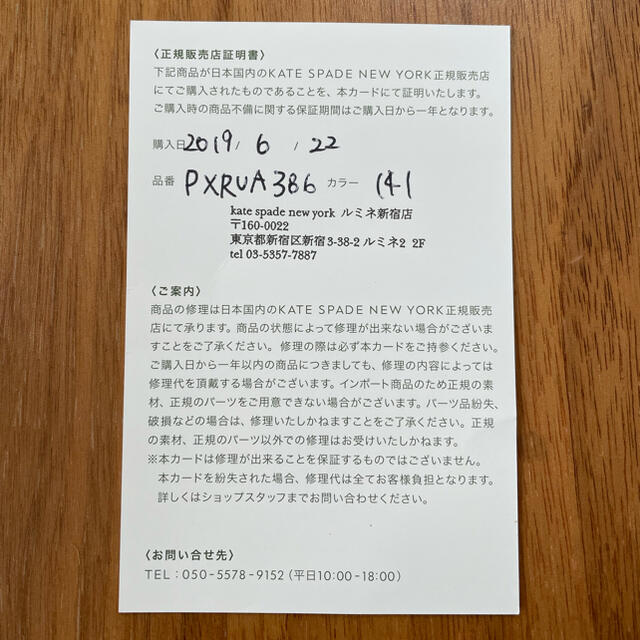 〈正規販売店証明書〉
下記商品が日本国内のKATE SPADE NEW YORK正規販売店
にてご購入されたものであることを、本カードにて証明いたします。
ご購入時の商品不備に関する保証期間はご購入日から一年となります。
購入日2019/ 6 / 22
品番 PXRUA386 カラー 141
kate spade new york ルミネ新宿店
〒160-0022
東京都新宿区新宿3-38-2 ルミネ2 2F
tel 03-5357-7887
〈ご案内〉
商品の修理は日本国内のKATE SPADE NEW YORK正規販売
店にて承ります。商品の状態によって修理が出来ない場合がございま
すことをご了承ください。修理の際は必ず本カードをご持参ください。
ご購入日から一年以内の商品につきましても、修理の内容によっては
修理代を頂戴する場合がございます。インポート商品のため正規の素
材、正規のパーツをご用意できない場合がございます。パーツ品紛失、
破損などの場合は、修理いたしかねますことをご了承ください。正規
の素材、正規のパーツ以外での修理はお受けいたしかねます。
※本カードは修理が出来ることを保証するものではございません。
本カードを紛失された場合、修理代は全てお客様負担となります。
詳しくはショップスタッフまでお問い合わせください。
〈お問い合せ先〉
TEL：050-5578-9152（平日10:00-18:00）